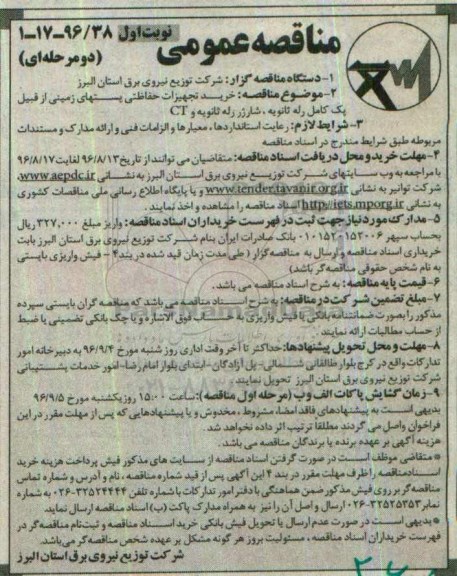 مناقصه عمومی
نوبت اول ۹۶/۳۸-۱۷-۱
(دو مرحله‌ای)
۱- دستگاه مناقصه گزار: شرکت توزیع نیروی برق استان البرز
۲- موضوع مناقصه: خرید تجهیزات حفاظتی پستهای زمینی از قبیل
پک کامل رله ثانویه، شارژر رله ثانویه و CT
۳- شرایط لازم: رعایت استانداردها، معیارها و الزامات فنی و ارائه مدارک و مستندات
مربوطه طبق شرایط مندرج در اسناد مناقصه
۴- مهلت خرید و محل دریافت اسناد مناقصه: متقاضیان می توانند از تاریخ ۹۶/۸/۱۳ لغایت ۹۶/۸/۱۷
با مراجعه به وب سایتهای شرکت توزیع نیروی برق استان البرز به نشانی www.aepdc.ir،
شرکت توانیر به نشانی www.tender.tavanir.org.ir و یا پایگاه اطلاع رسانی ملی مناقصات کشوری
به نشانی http://iets.mporg.ir اسناد مناقصه را مشاهده و اخذ نمایند.
۵- مدارک مورد نیاز جهت ثبت در فهرست خریداران اسناد مناقصه: واریز مبلغ ۳۲۷,۰۰۰ ریال
بحساب سپهر ۰۱۰۱۵۲۰۱۵۳۰۰۶ بانک صادرات ایران بنام شرکت توزیع نیروی برق استان البرز بابت
خریداری اسناد مناقصه و ارسال به مناقصه گزار (طی مدت زمان قید شده در بند ۴ - فیش واریزی بایستی
به نام شخص حقوقی مناقصه گر باشد)
۶- قیمت پایه مناقصه: به شرح اسناد مناقصه می باشد.
۷- مبلغ تضمین شرکت در مناقصه: به شرح اسناد مناقصه می باشد که مناقصه گران بایستی سپرده
مذکور را بصورت ضمانتنامه بانکی یا فیش واریزی به حساب فوق الاشاره و یا چک بانکی تضمینی یا ضبط
از حساب مطالبات ارائه نمایند.
۸- مهلت و محل تحویل پیشنهادها: حداکثر تا آخر وقت اداری روز شنبه مورخ ۹۶/۹/۴ به دبیرخانه امور
تدارکات واقع در کرج بلوار طالقانی شمالی - پل آزادگان - ابتدای بلوار امام رضا - امور خدمات پشتیبانی
شرکت توزیع نیروی برق استان البرز تحویل نمایند.
۹- زمان گشایش پاکات الف و ب (مرحله اول مناقصه): ساعت ۱۵:۰۰ روز یکشنبه مورخ ۹۶/۹/۵
بدیهی است به پیشنهادهای فاقد امضاء، مشروط، مخدوش و یا پیشنهادهایی که پس از مهلت مقرر در این
فراخوان واصل می گردند مطلقا ترتیب اثر داده نخواهد شد.
هزینه آگهی بر عهده برنده یا برندگان مناقصه می باشد.
* متقاضی موظف است در صورت گرفتن اسناد مناقصه از سایت های مذکور فیش پرداخت هزینه خرید
اسناد مناقصه را ظرف مهلت مقرر در بند ۴ این آگهی پس از قید شماره مناقصه، نام و آدرس و شماره تماس
مناقصه گر بر روی فیش مذکور ضمن هماهنگی با دفتر امور تدارکات با شماره تلفن ۳۲۵۲۴۴۴۴-۰۲۶ به شماره
نمابر ۳۲۵۲۵۲۵۳-۰۲۶ ارسال و اصل آن را نیز به همراه مدارک پاکت (ب) اسناد مناقصه ارسال نماید.
* بدیهی است در صورت عدم ارسال یا تحویل فیش بانکی خرید اسناد مناقصه و ثبت نام مناقصه گر در
فهرست خریداران اسناد مناقصه، مسئولیت بروز هر گونه مشکل بر عهده شخص مناقصه گر می باشد.
شرکت توزیع نیروی برق استان البرز